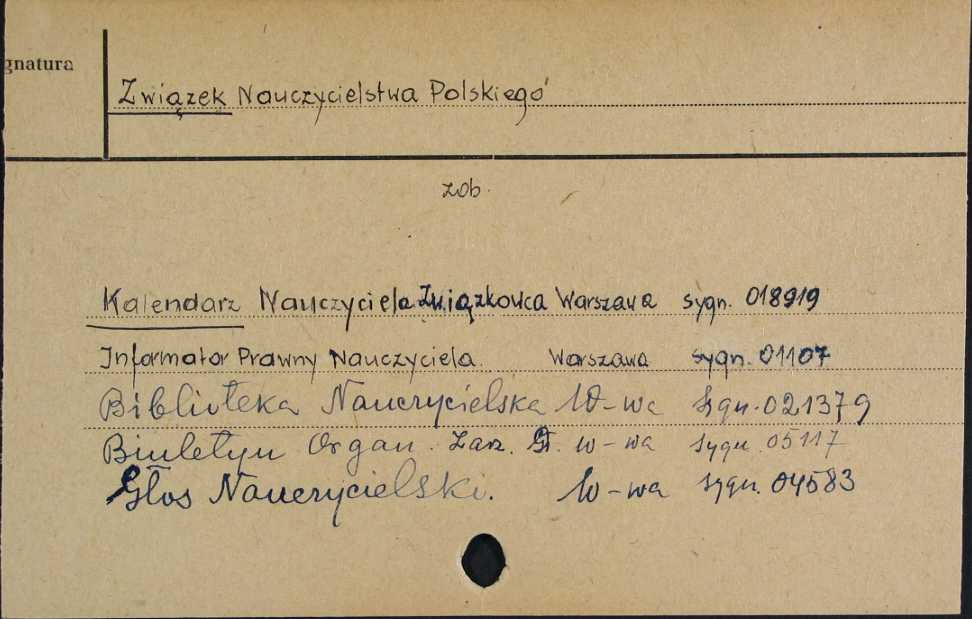 gnatura
Związek Nauczycielstwa Polskiego
zob.
Kalendarz Nauczyciela Związkowca Warszawa sygn. 018919
Informator Prawny Nauczyciela. Warszawa sygn. 01107
Biblioteka Nauczycielska W-wa sygn. 021379
Biuletyn Organ. Zarz. Gł. W-wa sygn. 05117
Głos Nauczycielski. W-wa sygn. 04583